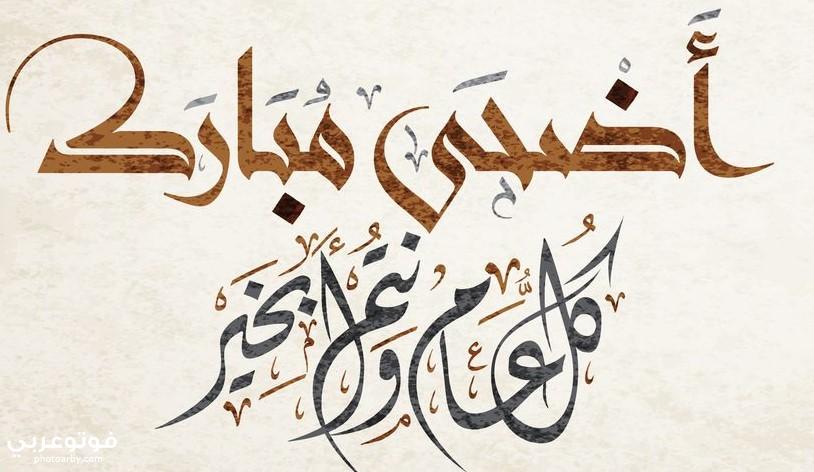 أَضْحَى مُبَارَك
كُلُّ عَام وَأَنتُم بِخَيْر
فوتوعربي
photoarby.com